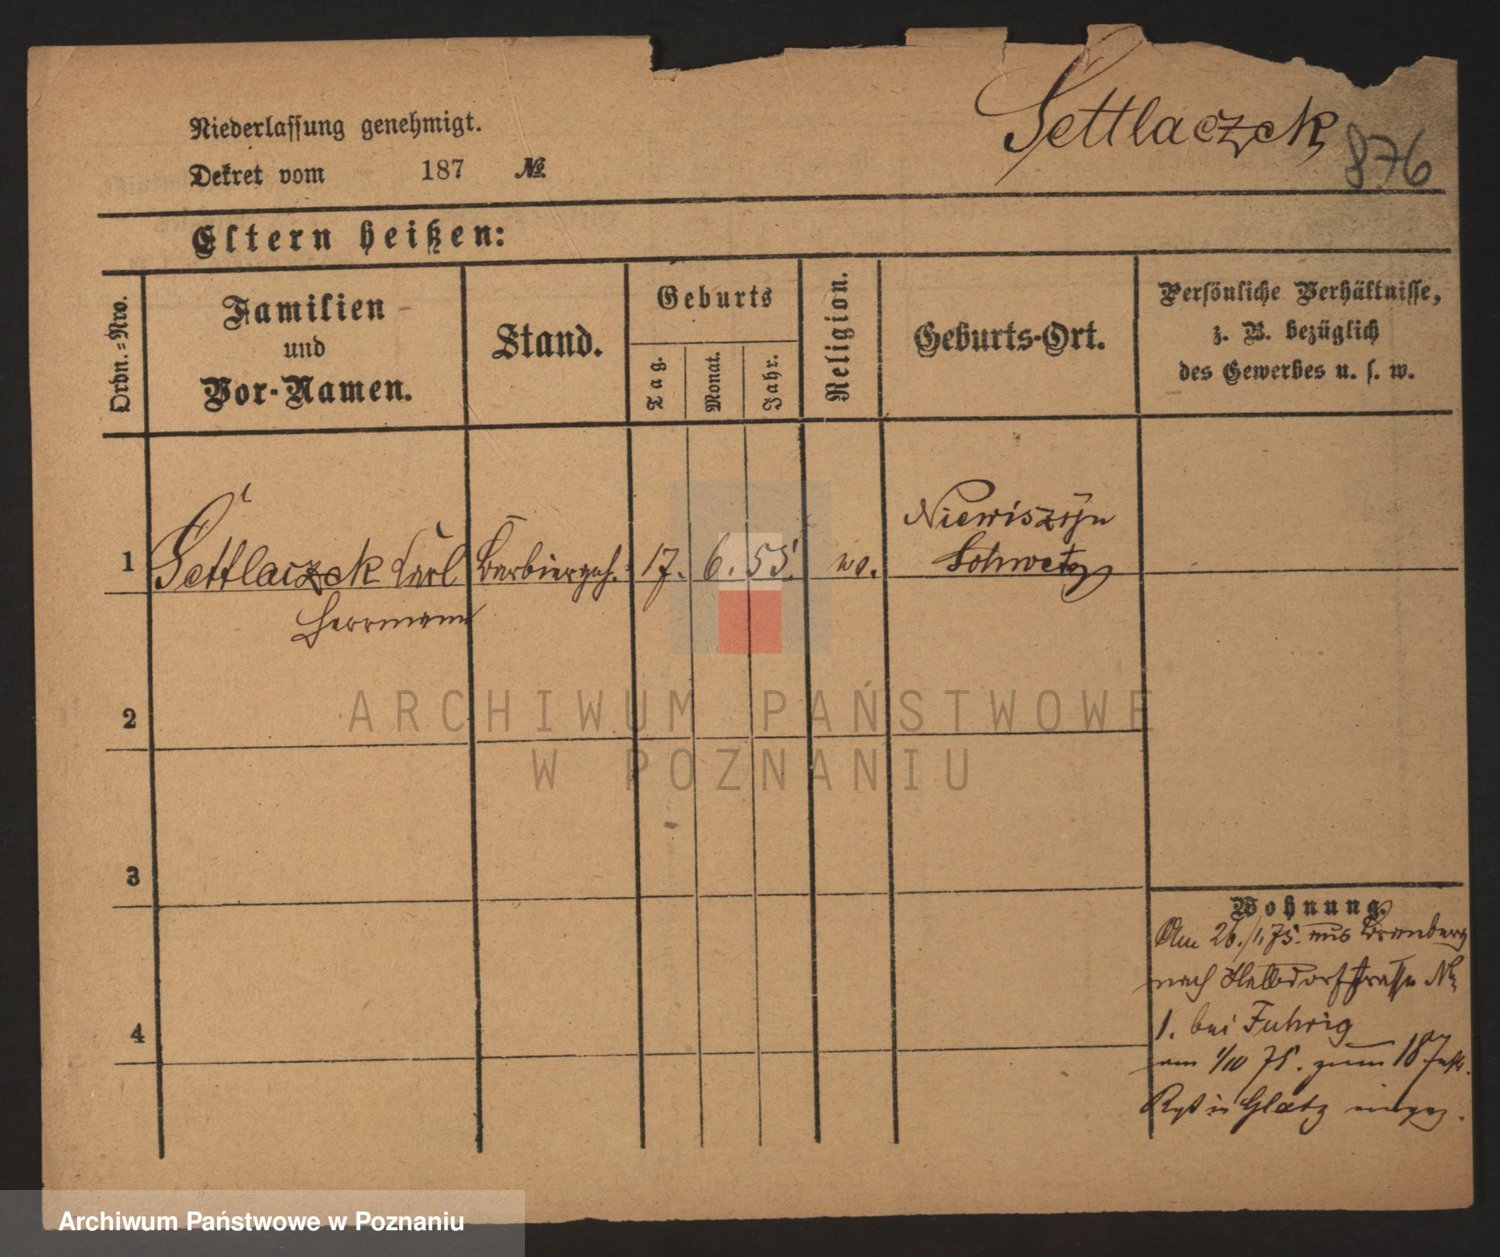 Settlaczek
876
Niederlassung genehmigt.
Dekret vom 187 №
Eltern heißen:
Ordn.-Nro.
Familien
und
Vor-Namen.
Stand.
Geburts
Tag.
Monat.
Jahr.
Religion.
Geburts-Ort.
Persönliche Verhältnisse,
z. B. bezüglich
des Gewerbes u. s. w.
1 Settlaczek Carl Barbiergeh. 17. 6. 55.
Herrmann
Schwetz
2
3
4
Wohnung.
Am 26./1. 75. aus Bromberg
nach Halbdorfstrasse №
1. bei Fuhrig
am 1/10 75. zum 18 Inft.
Rgt in Glatz eingez.
ARCHIWUM PAŃSTWOWE
W POZNANIU
Archiwum Państwowe w Poznaniu